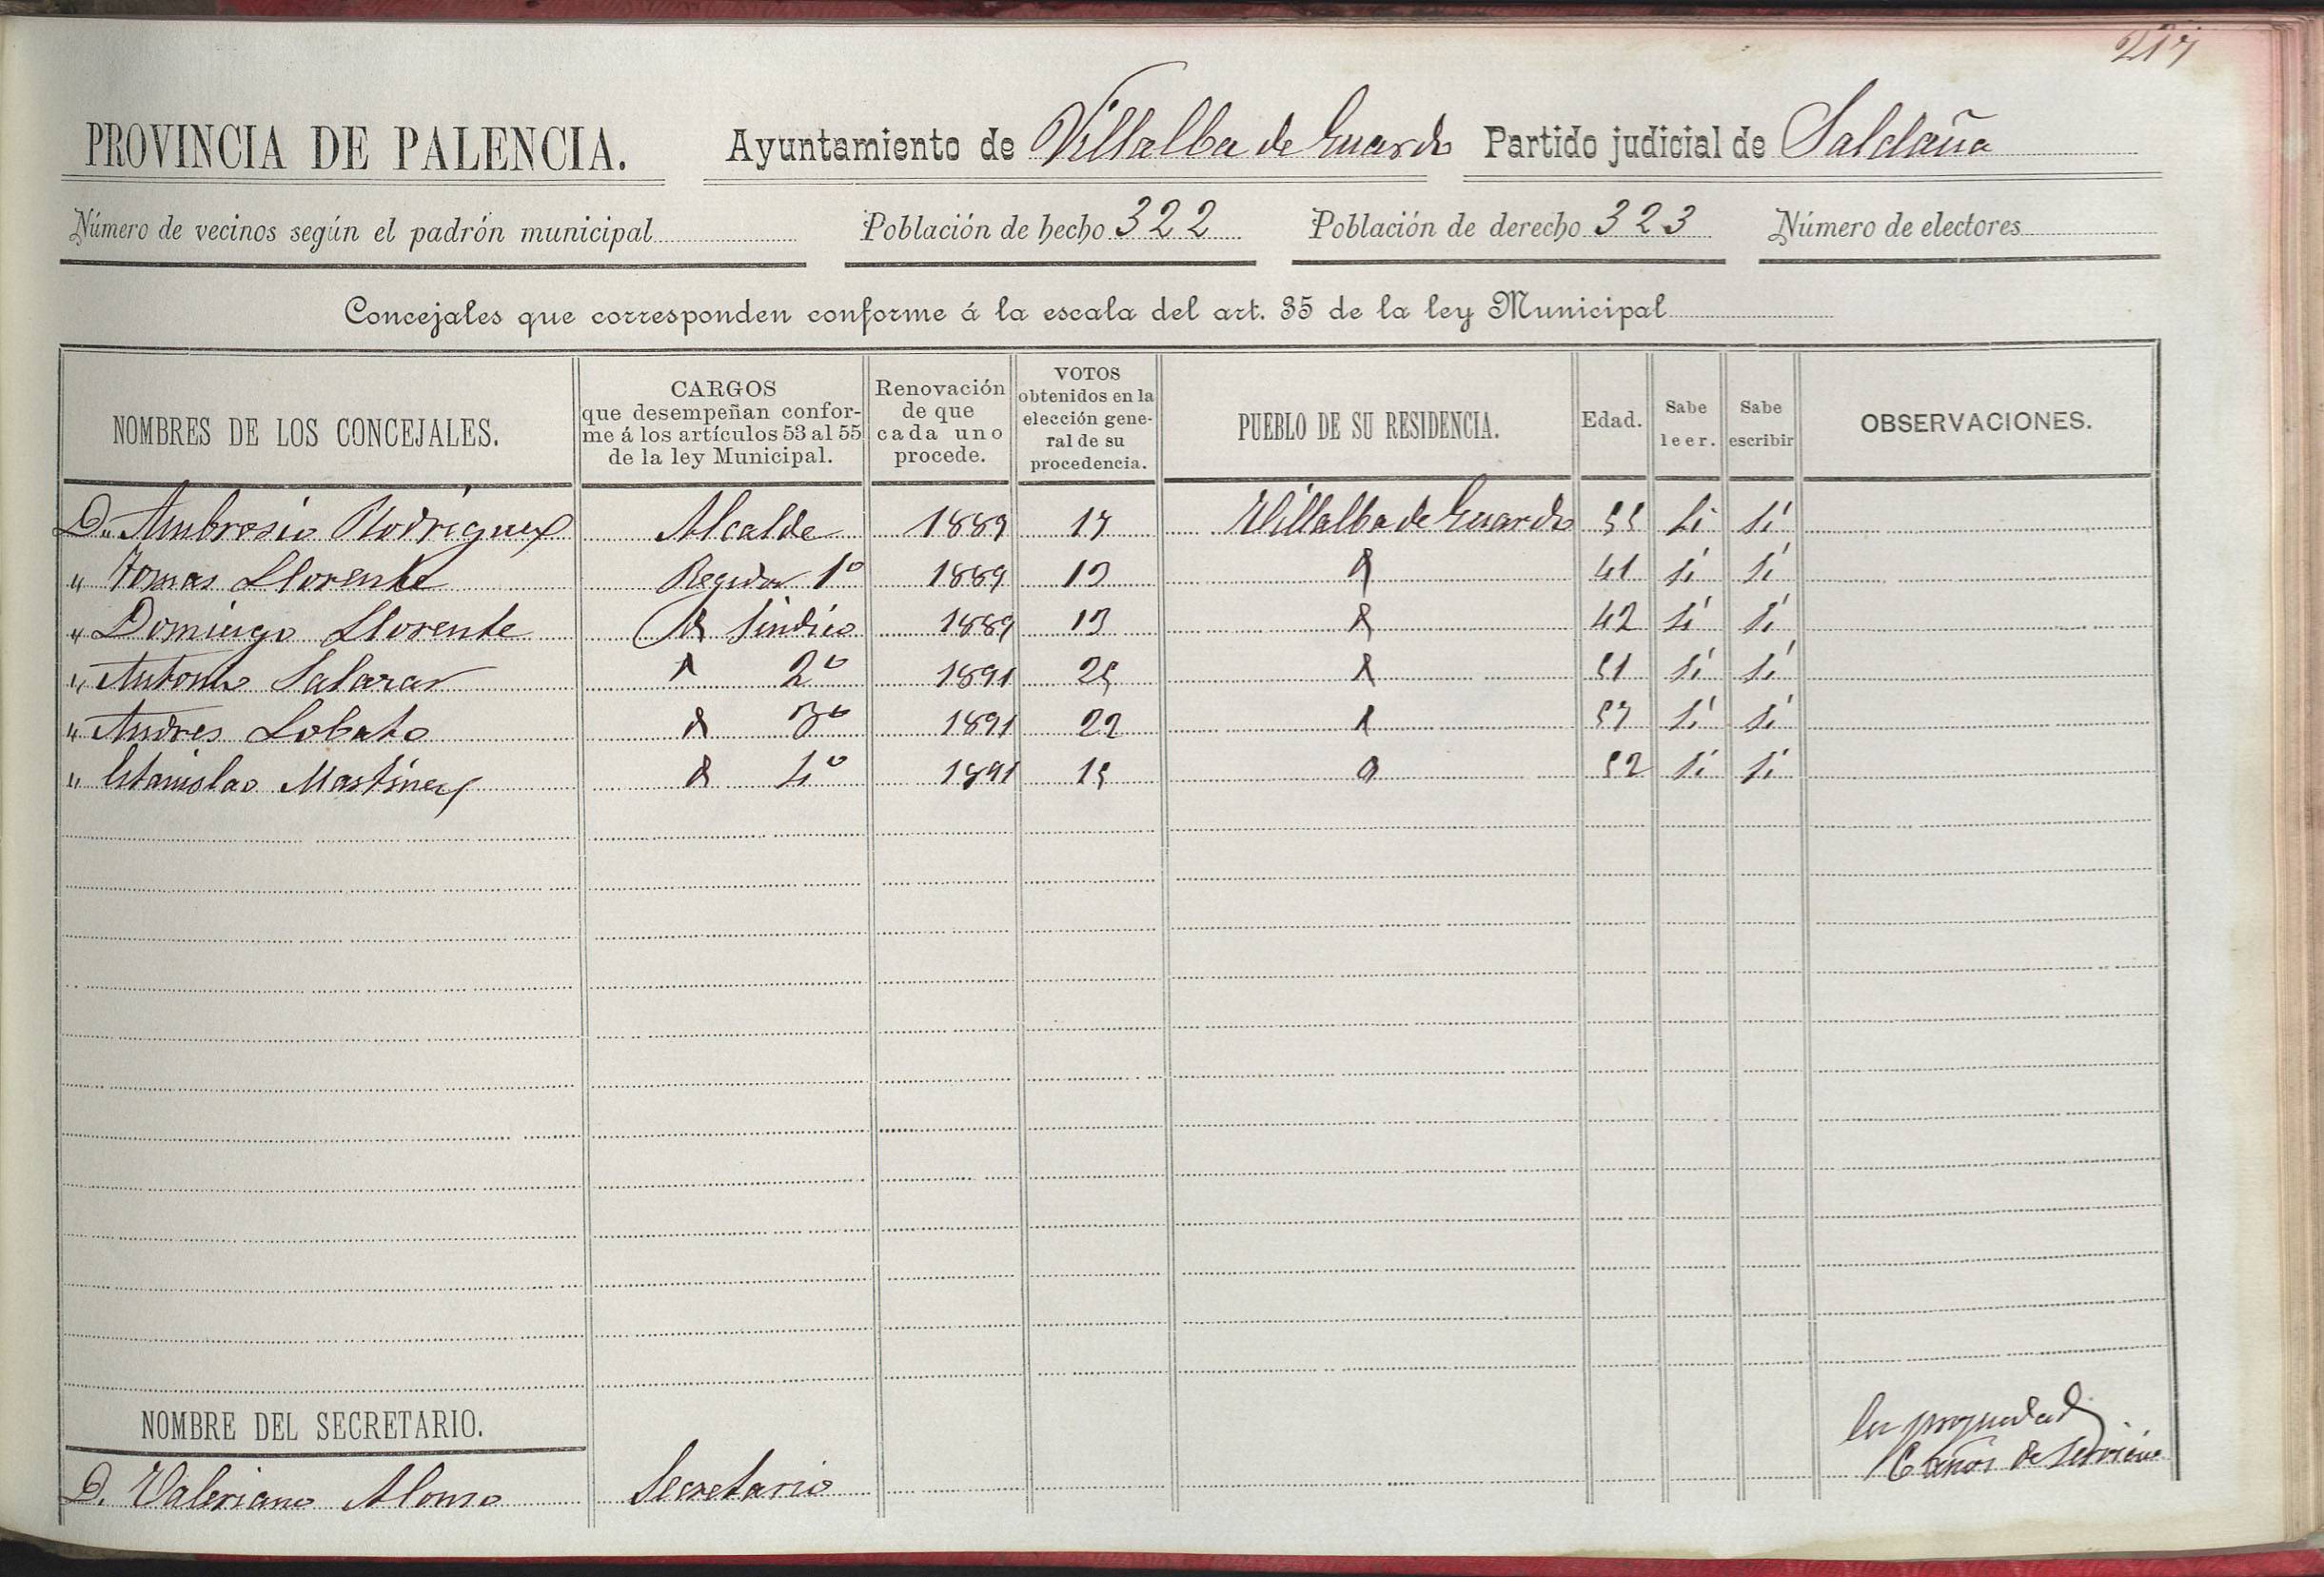 217
PROVINCIA DE PALENCIA. Ayuntamiento de Villalba de Guardo Partido judicial de Saldaña
Número de vecinos según el padrón municipal Población de hecho 322 Población de derecho 323 Número de electores
Concejales que corresponden conforme á la escala del art. 35 de la ley Municipal
NOMBRES DE LOS CONCEJALES. CARGOS que desempeñan confor-me á los artículos 53 al 55 de la ley Municipal. Renovación de que cada uno procede. VOTOS obtenidos en la elección gene-ral de su procedencia. PUEBLO DE SU RESIDENCIA. Edad. Sabe leer. Sabe escribir OBSERVACIONES.
D. Ambrosio Rodriguez Alcalde 1889 17 Villalba de Guardo 55 Si Si
" Tomas Llorente Regidor 1º 1889 13 41 Si Si
" Domingo Llorente Sindico 1889 13 42 Si Si
" Antonio Salazar 2º 1891 25 51 Si Si
" Andres Lobato 3º 1891 22 57 Si Si
" Estanislao Martinez 4º 1891 15 52 Si Si
NOMBRE DEL SECRETARIO.
D. Valeriano Alonso Secretario En propiedad
6 años de servicio